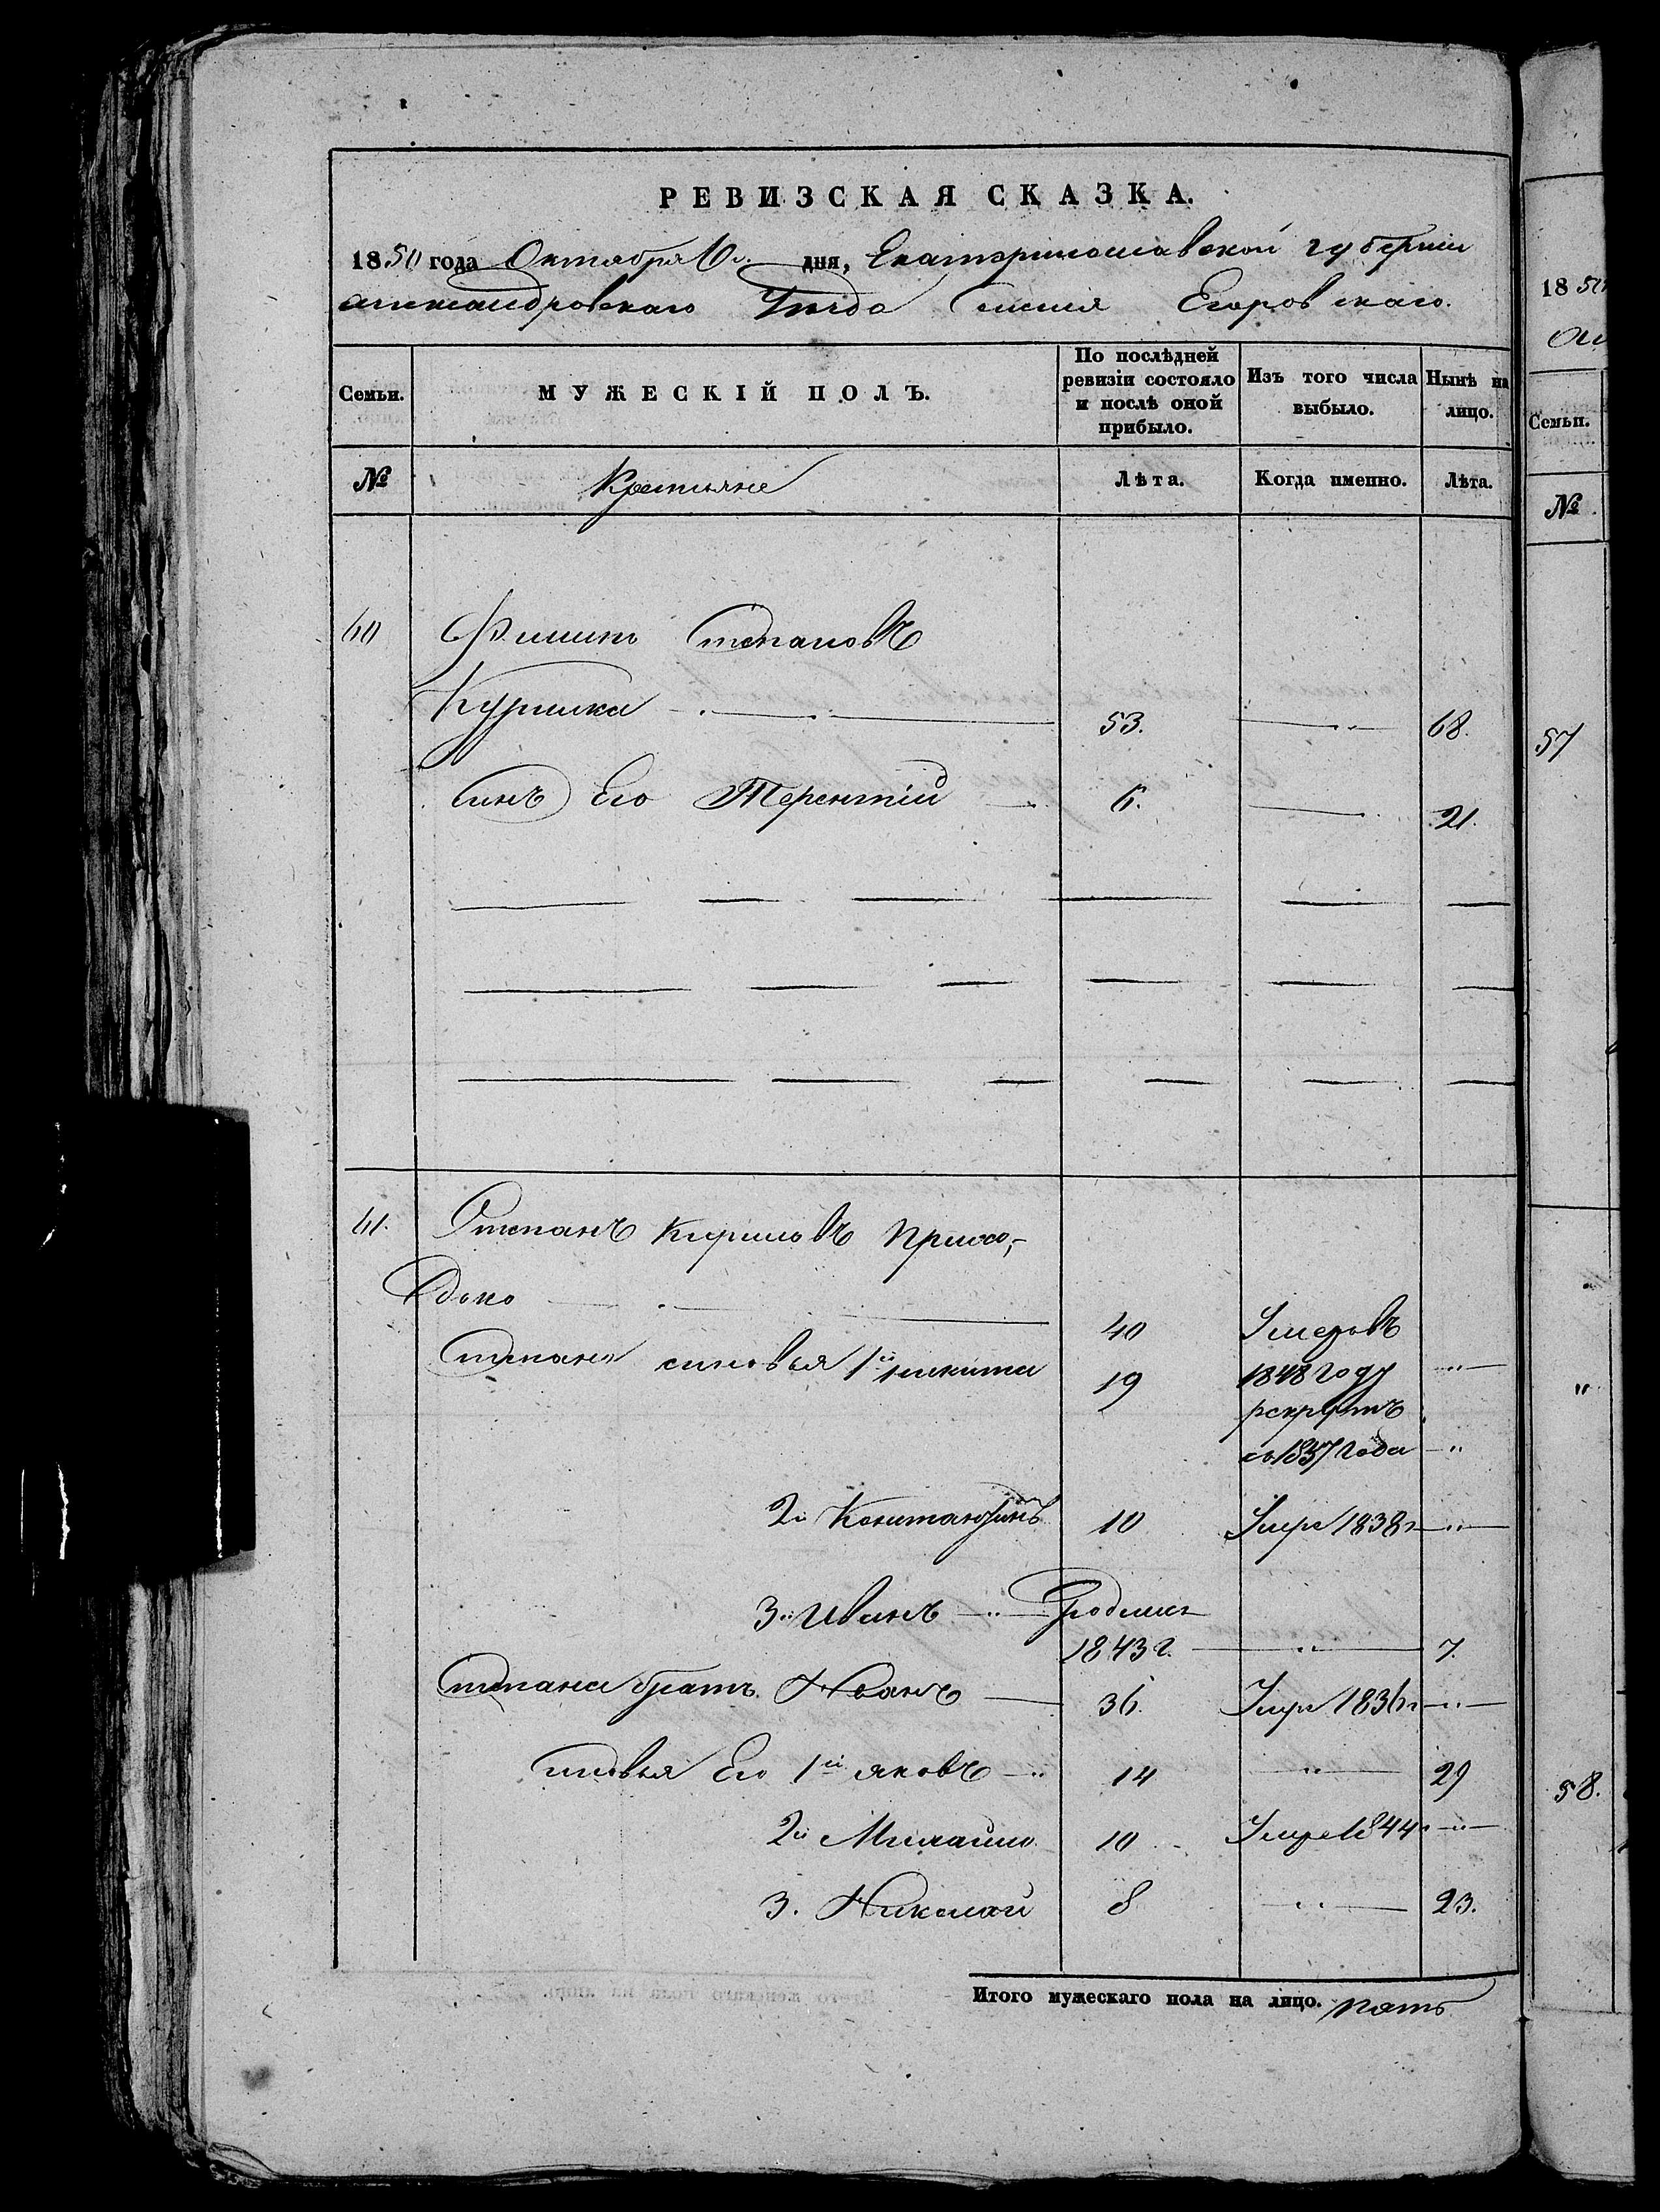 РЕВИЗСКАЯ СКАЗКА.
1850 года Октября 6го дня, Екатеринославской губернии
александровскаго Уезда Селенія Егоровскаго.
Семьи. МУЖЕСКІЙ ПОЛЪ. По послѣдней ревизіи состояло и послѣ оной прибыло. Изъ того числа выбыло. Нынѣ на лицо.
№ Крестьяне Лѣта. Когда именно. Лѣта.
60 Филипъ Степановъ
Куришка 53. 68.
Синъ Его Терентій 6. 21.
61. Степанъ Кириловъ
40 Умеръ въ
1848 году
Степана синовья 1й никита 19 рекрутъ
съ 1837 года
2й Константинъ 10 Умре 1838г
3й Иванъ Родился
1843 г. 7.
Степана братъ Иванъ 36. Умре 1836г
синовья Его 1й яковъ 14 29
2й Михайло 10 Умре 1844г
3. Николай 8 23.
Итого мужескаго пола на лицо. пять
1850
Семьи.
№
57
58.